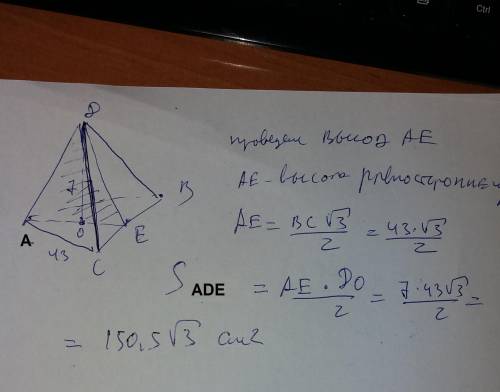 Ctrl
D
7
B
A
O
E
43
C
проведем высоту AE
AE - высота равносторонне
AE = BC√3/2 = 43·√3/2
S ADE = AE · DO/2 = 7·43√3/2 =
= 150,5√3 см2